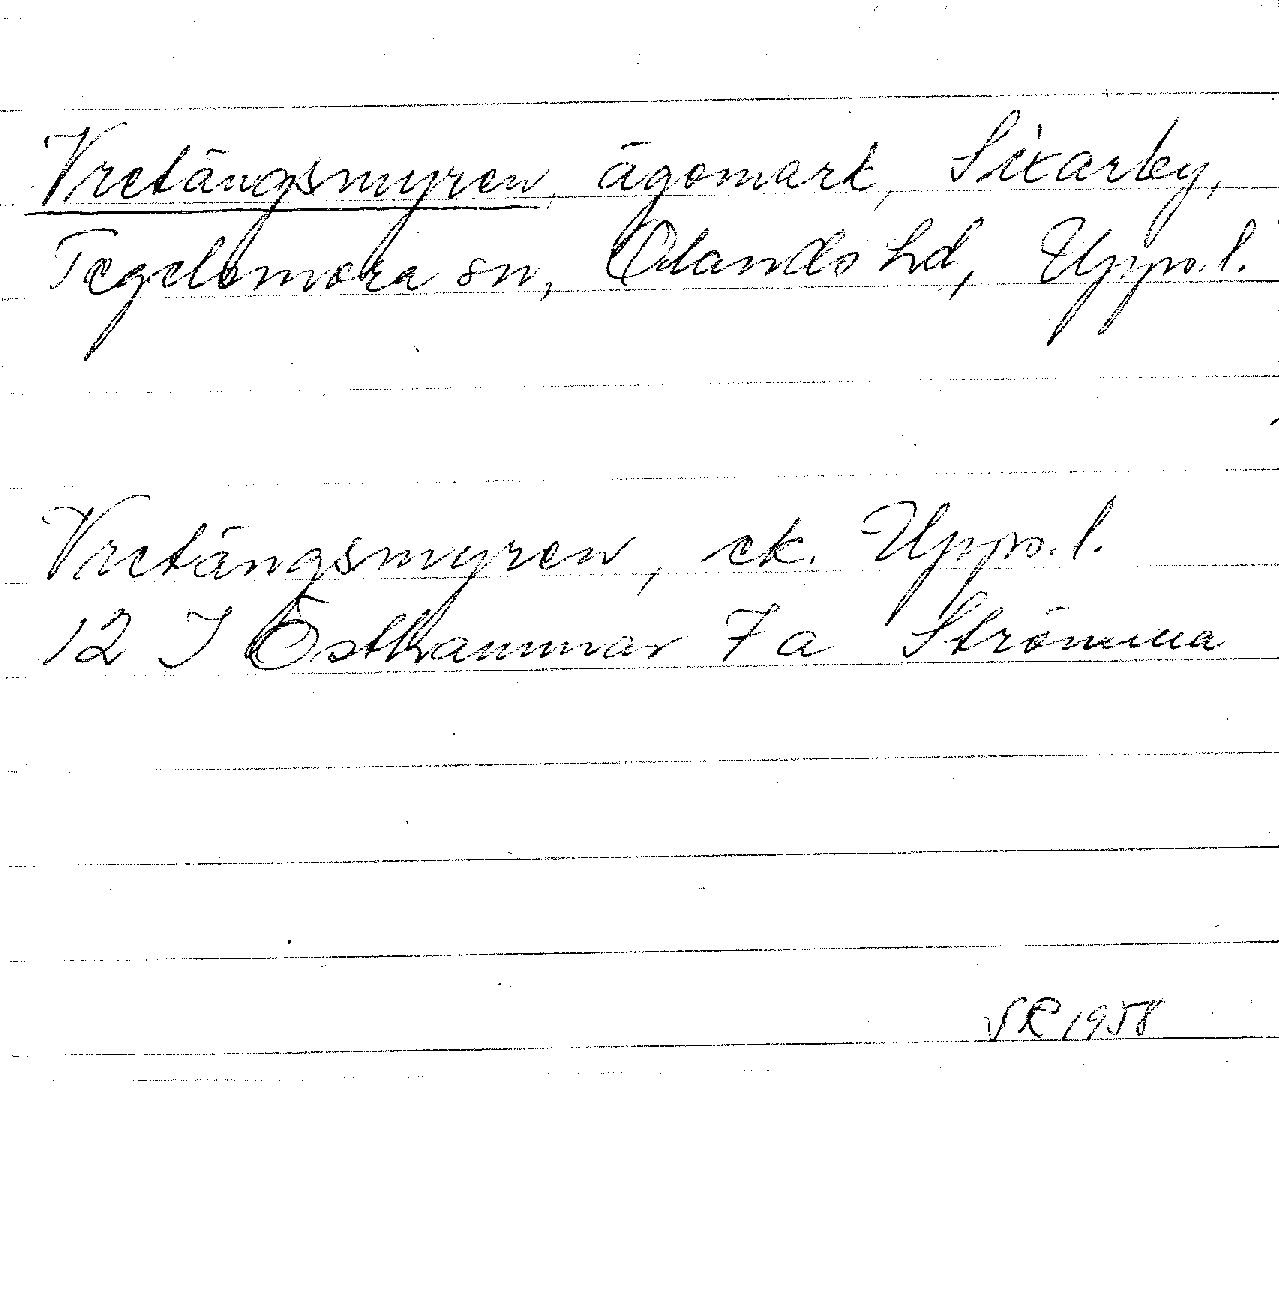 Vretängsmyren, ägomark, Sixarby,
Tegelsmora sn, Olands hd, Upps. l.
Vretängsmyren, ek. Upps. l.
12 I Östhammar 7 a Strömma
1958